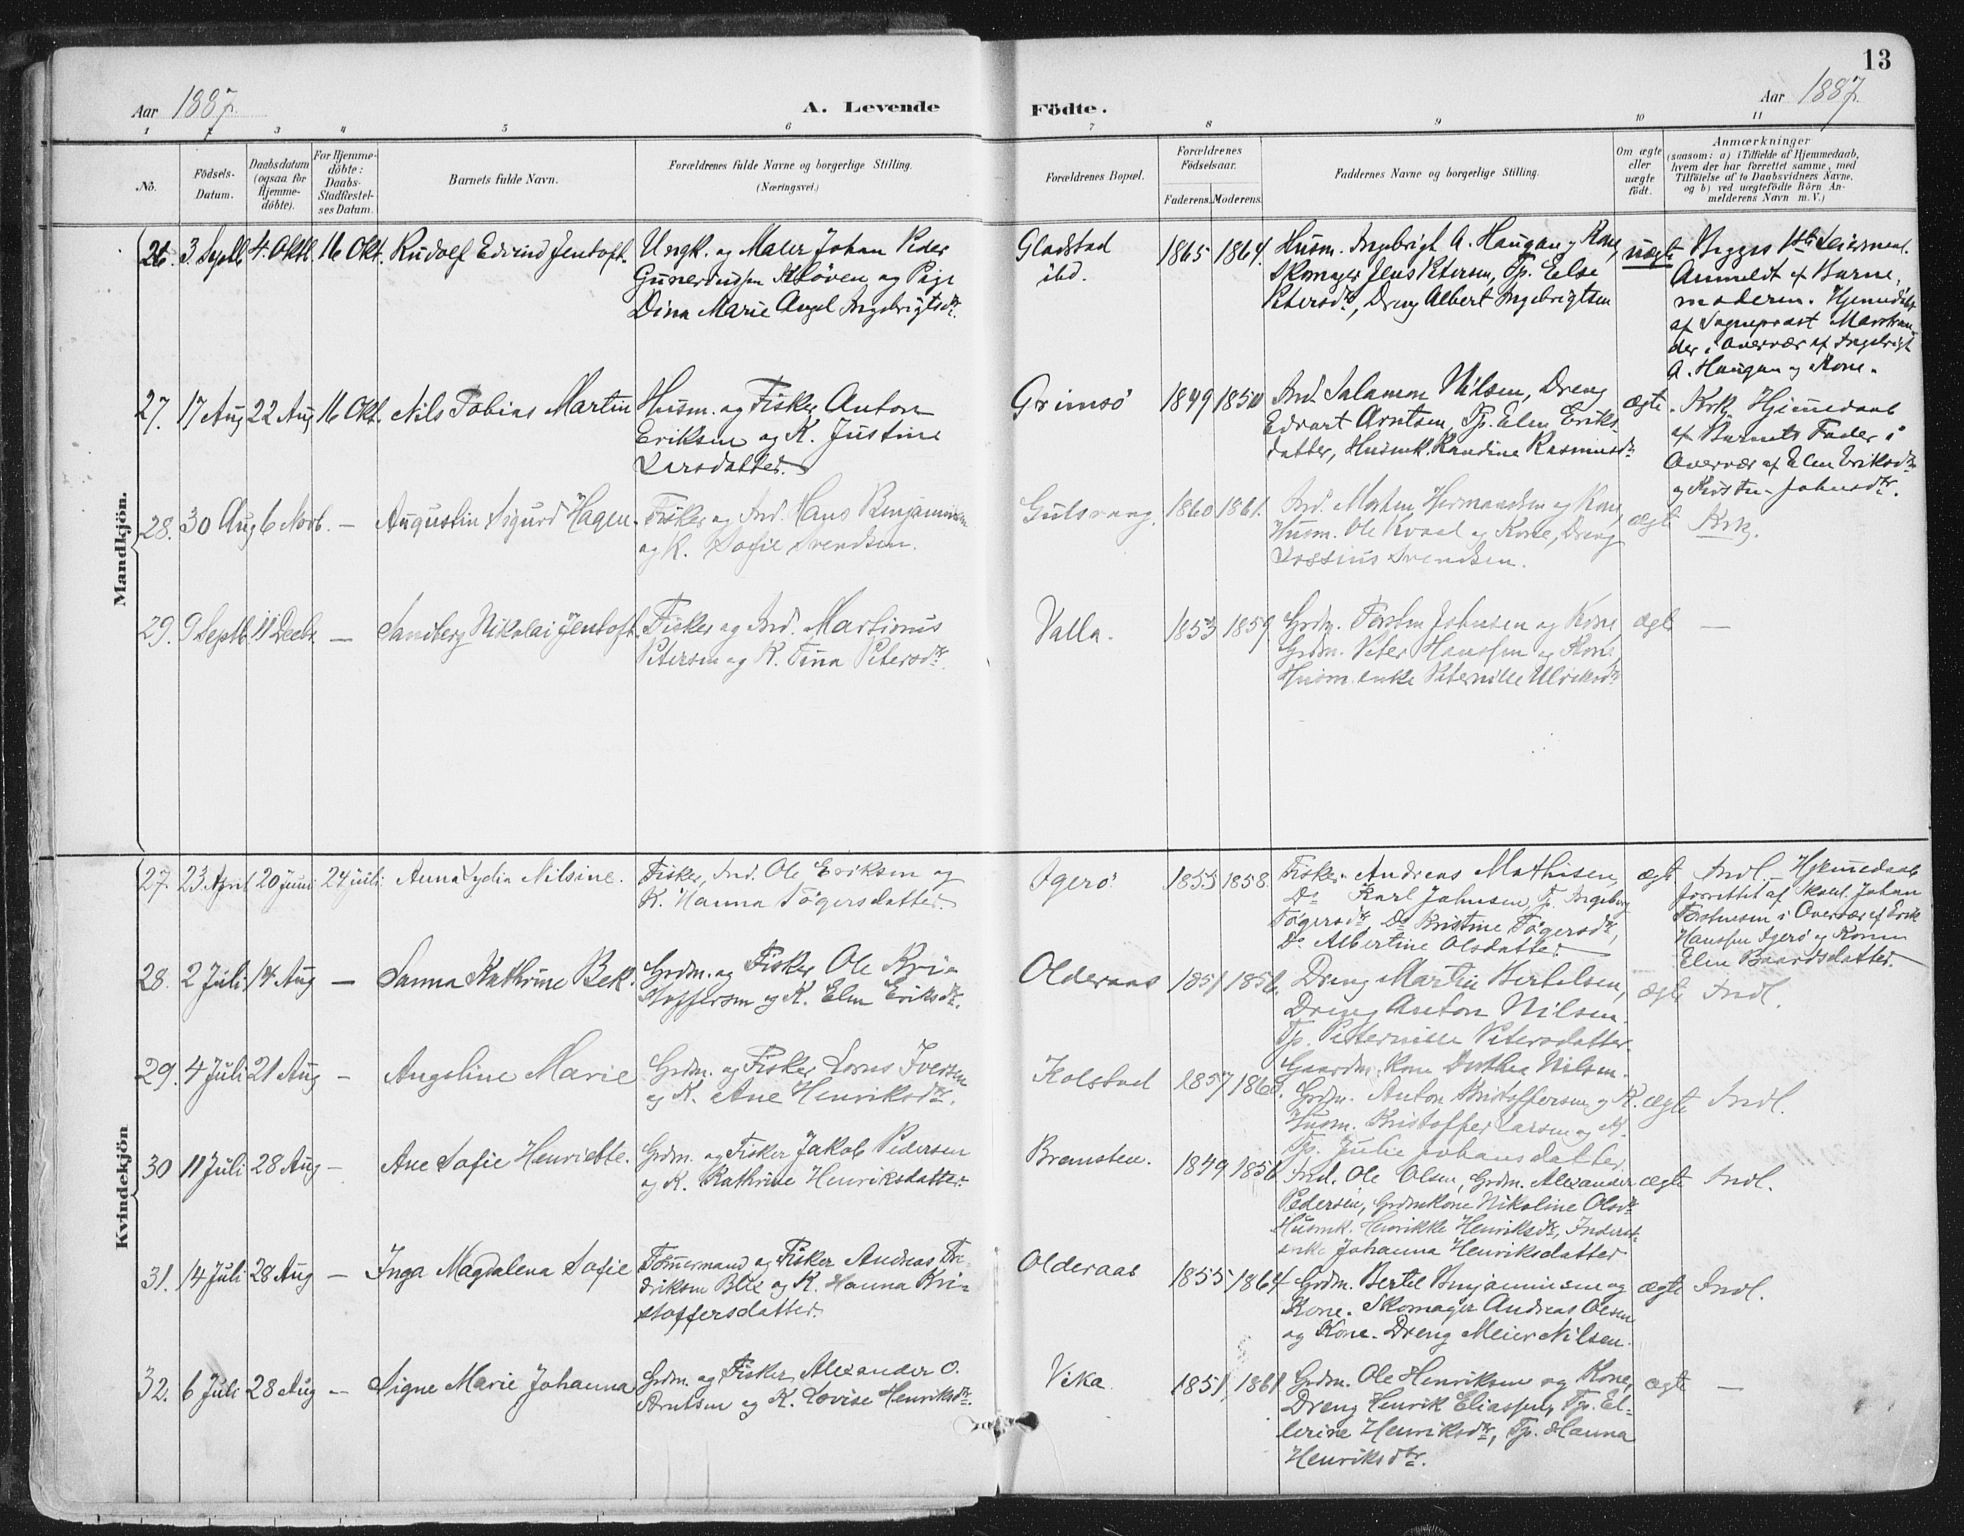 13
Aar 1887.
A. Levende
Födte.
Aar 1887.
1 2 3 4 5 6 7 8 9 10 11
No.
Födsels-
Datum.
Daabsdatum
(ogsaa for
Hjemme-
döbte).
For Hjemme-
döbte:
Daabs-
Stadfæstel-
ses Datum.
Barnets fulde Navn.
Forældrenes fulde Navne og borgerlige Stilling.
(Næringsvei.)
Forældrenes Bopæl.
Forældrenes
Födselsaar.
Faderens. Moderens.
Faddernes Navne og borgerlige Stilling.
Om ægte
eller
uægte
födt.
Anmærkninger
(saasom: a) i Tilfælde af Hjemmedaab,
hvem der har forrettet samme, med
Tilföielse af to Daabsvidners Navne,
og b) ved uægtefödte Börn An-
melderens Navn m. V.)
Mandkjön.
26. 3 Septb. 4. Oktb. 16 Okt. Rudolf Edvind Jentoft.
Ungk. og Maler Johan Peder
Kløven og Pige
Dina Marie Angel Ingebrigtsdtr.
Gladstad
ibd.
1865 1864.
Husm. Ingebrigt A. Haugan og Kone,
Skomager Jens Petersen, Tp. Else
Petersdtr., Dreng Albert Ingebrigtsen
uægte
Begges 1ste Leiermaal.
Anmeldt af Barne-
moderen. Hjemmedöbt
af Sognepræst
i Overvær af Ingebrigt
A. Haugan og Kone.
27. 17 Aug 22 Aug 16 Okt. Nils Tobias Martin
Husm. og Fisker Anton
Eriksen og K. Justine
Larsdatter.
Grimsö
1849 1850
Ind. Salamon Nilsen, Dreng
Edvart Arntsen, Tp. Elen Eriks-
datter, Husmk. Randine Rasmusdtr.
ægte
Krk. Hjemmedaab
af Barnets Fader i
Overvær af Elen Eriksdtr.
og Johnsdtr.
28. 30 Aug 6 Novb. — Augustin Sigurd Hagen.
Fisker og Ind. Hans Benjaminsen
og K. Sofie Svendsen.
Gulsvaag.
1860 1861.
Ind. Morten Hermandsen og Kone,
Husm. Ole Kvaal og Kone, Dreng
Lossius Svendsen.
ægte
Krk.
29. 9 Septb. 11 Decbr. — Sandberg Nikolai Jentoft.
Fisker og Ind. Martinus
Petersen og K. Tina Petersdtr.
Valla.
1853 1859
Grdm. Torsten Johnsen og Kone,
Grdm. Peter Hanssen og Kone,
Husm. enke Peternille Ulriksdtr.
ægte —
Kvindekjön
27. 23 April 20 Juni 24 Juli Anna Lydia Nilsine.
Fisker, Ind. Ole Eriksen og
K. Hanna Tögersdatter.
Igerö
1855 1858.
Fisker Andreas Mathisen,
Do Karl Johnsen, Tp. Ingeborg
Tögersdtr. Do Kristine Tögersdtr.,
Do Albertine Olsdatter
ægte
Indl. Hjemmedaab
forrettet af Johan
Torstensen i Overvær af Erik
Hanssen Igerö og Konen
Elen Baardsdatter.
28. 2 Juli 14 Aug — Sanna Kathrine Bek.
Grdm. og Fisker Ole Kri-
stoffersen og K. Elen Eriksdtr.
Olderaas
1851 1856.
Dreng Martin Bertelsen,
Dreng Anton Nilsen.
Tp. Peternille Petersdatter.
Gaardm. kone Dorthea Nilsen.
ægte Indl.
29. 4 Juli 21 Aug — Angeline Marie
Grdm. og Fisker Lorns Iversen
og K. Ane Henriksdtr.
Kolstad
1857 1860.
Grdm. Anton Kristoffersen og K.
Husm. Kristoffer Larsen og K.
Tp. Julie Johansdatter
ægte Indl.
30 11 Juli 28 Aug — Ane Sofie Henriette.
Grdm. og Fisker Jakob Pedersen
og K. Kathrine Henriksdatter.
Bremsten.
1849 1856
Ind. Ole Olsen, Grdm. Alexander
Pedersen, Grdmkone Nikoline Olsdtr.
Husmk. Henrikke Henriksdtr., Inderst-
enke Johanna Henriksdatter
ægte Indl.
31. 14 Juli 28 Aug — Inga Magdalena Sofie
Tömmermand og Fisker Andreas Fre-
driksen Blix og K. Hanna Kri-
stoffersdatter.
Olderaas
1855 1864
Grdm. Bertel Benjaminsen og
Kone. Skomager Andreas Olsen
og Kone. Dreng Meier Nilsen.
ægte Indl.
32. 6 Juli 28 Aug — Signe Marie Johanna
Grdm. og Fisker Alexander O.
Arntsen og K. Lovise Henriksdtr.
Vika
1851 1861
Grdm. Ole Henriksen og Kone,
Dreng Henrik Eliassen, Tp. El-
lerine Henriksdtr., Tp. Hanna
Henriksdtr.
ægte —